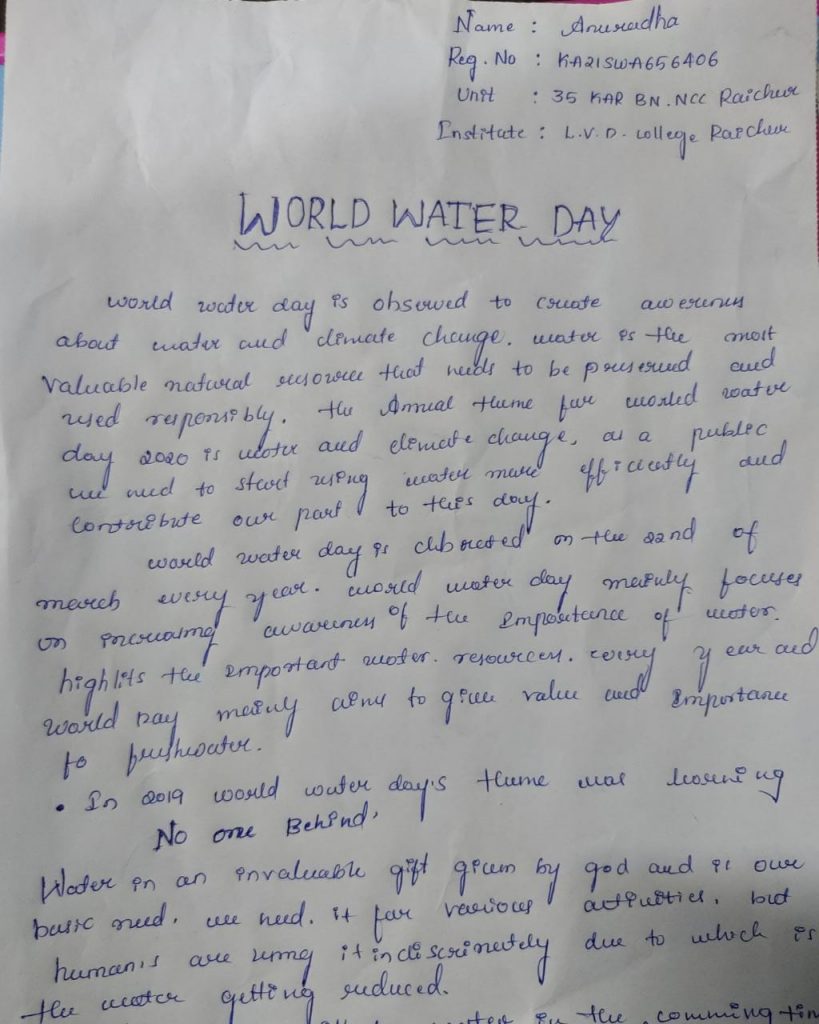 Name : Anuradha
Reg. No : KA21SWA656406
Unit : 35 KAR BN. NCC Raichur
Institute : L.V.D. college Raichur
WORLD WATER DAY
world water day is observed to create awerenes
about water and climate change. water is the most
valuable natural resource that needs to be preserved and
used responsibly. the Annual theme for world water
day 2020 is water and climate change, as a public
we need to start using water more efficiently and
contribute our part to this day.
world water day is clibrated on the 22nd of
march every year. world water day mainly focuses
on increasing awareness of the Importance of water.
highlits the important water. resources. every year and
world Day mainly aims to give value and Importance
to freshwater.
• In 2019 world water day's theme was learning
No one Behind.
Water in an invaluable gift given by god and is our
basic need. we need. it for various activities. but
humanis are using it indiscriminetely due to which is
the water getting reduced.
water in the comming tim